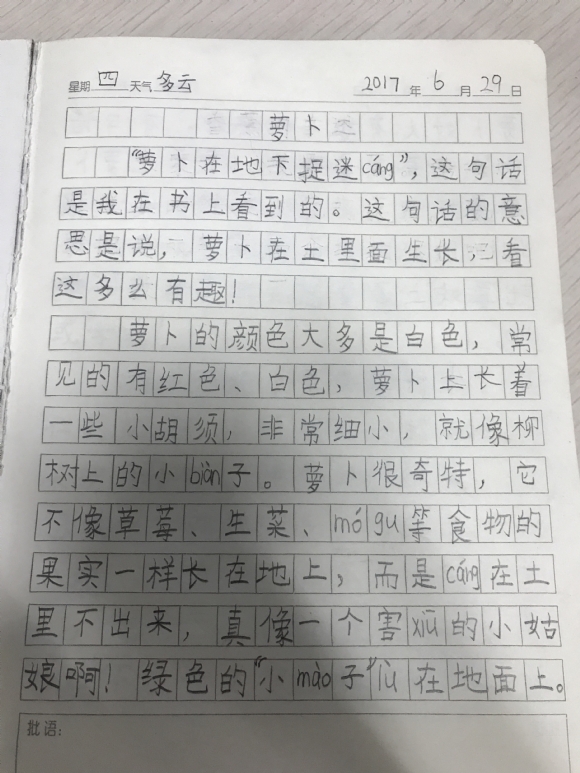 星期 四 天气 多云 2017 年 6 月 29 日
萝卜
“萝卜在地下捉迷cáng”，这句话
是我在书上看到的。这句话的意
思是说，萝卜在土里面生长，看
这多么有趣！
萝卜的颜色大多是白色，常
见的有红色、白色，萝卜上长着
一些小胡须，非常细小，就像柳
树上的小biàn子。萝卜很奇特，它
不像草莓、生菜、mógu等食物的
果实一样长在地上，而是cáng在土
里不出来，真像一个害xiū的小姑
娘啊！绿色的“小mào子”lù在地面上。
批语：